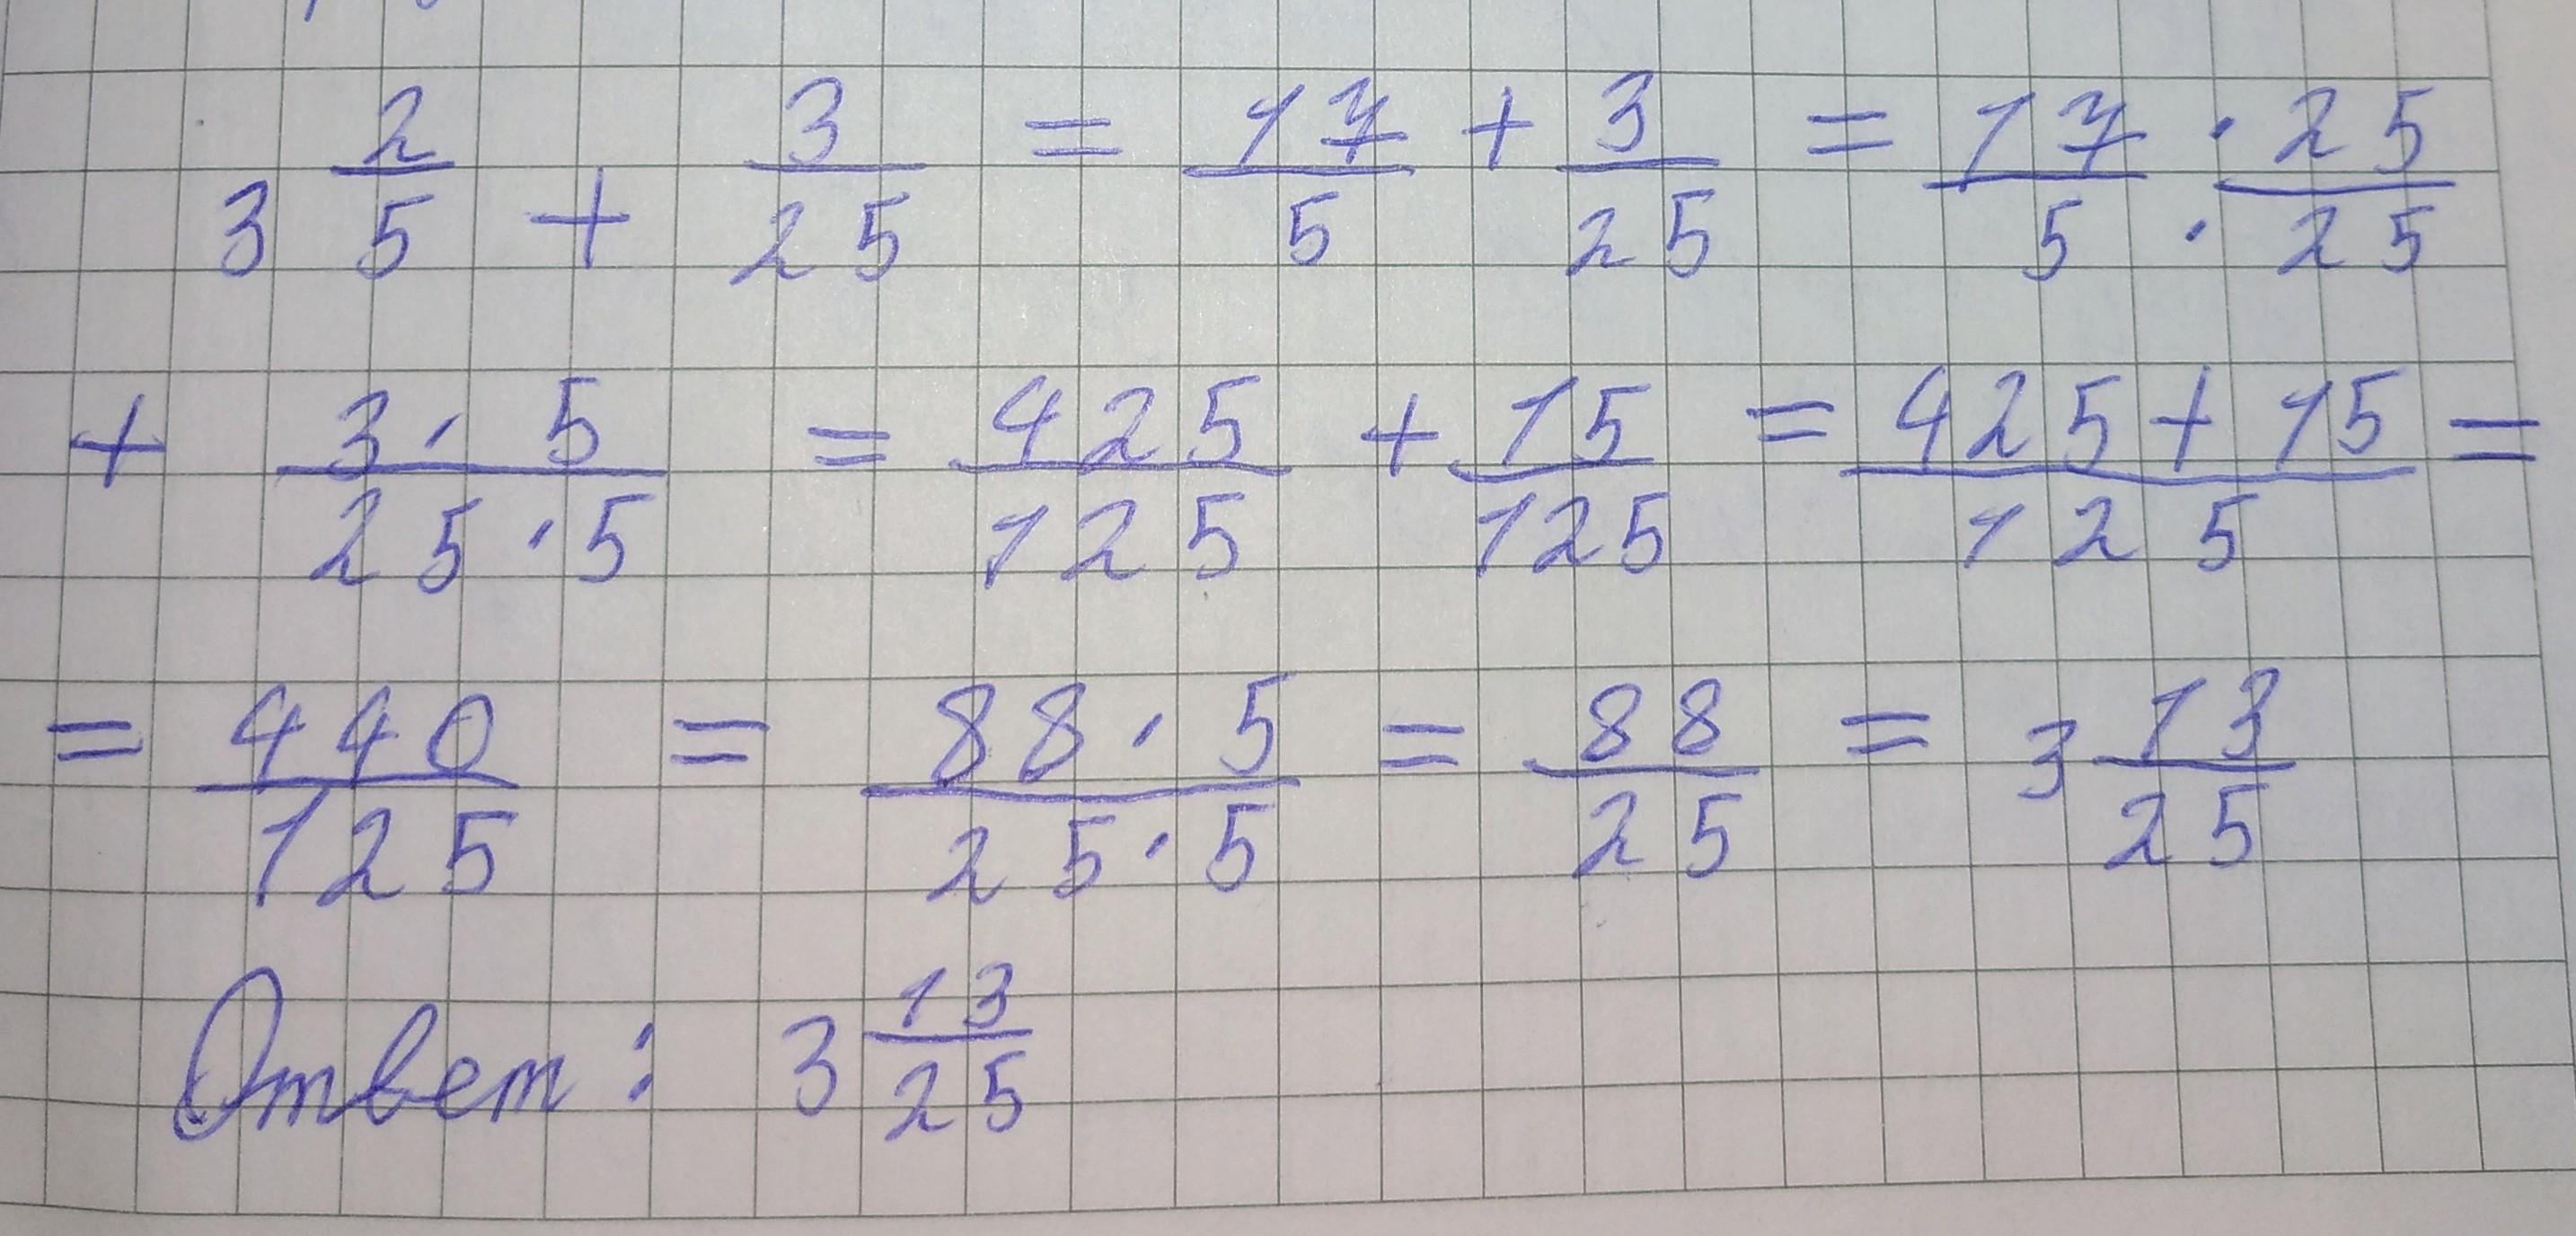 3 2/5 + 3/25 = 17/5 + 3/25 = 17/5 · 25/· 25
+ 3 · 5/25 · 5 = 425/125 + 15/125 = 425 + 15/125 =
= 440/125 = 88 · 5/25 · 5 = 88/25 = 3 13/25
Ответ: 3 13/25